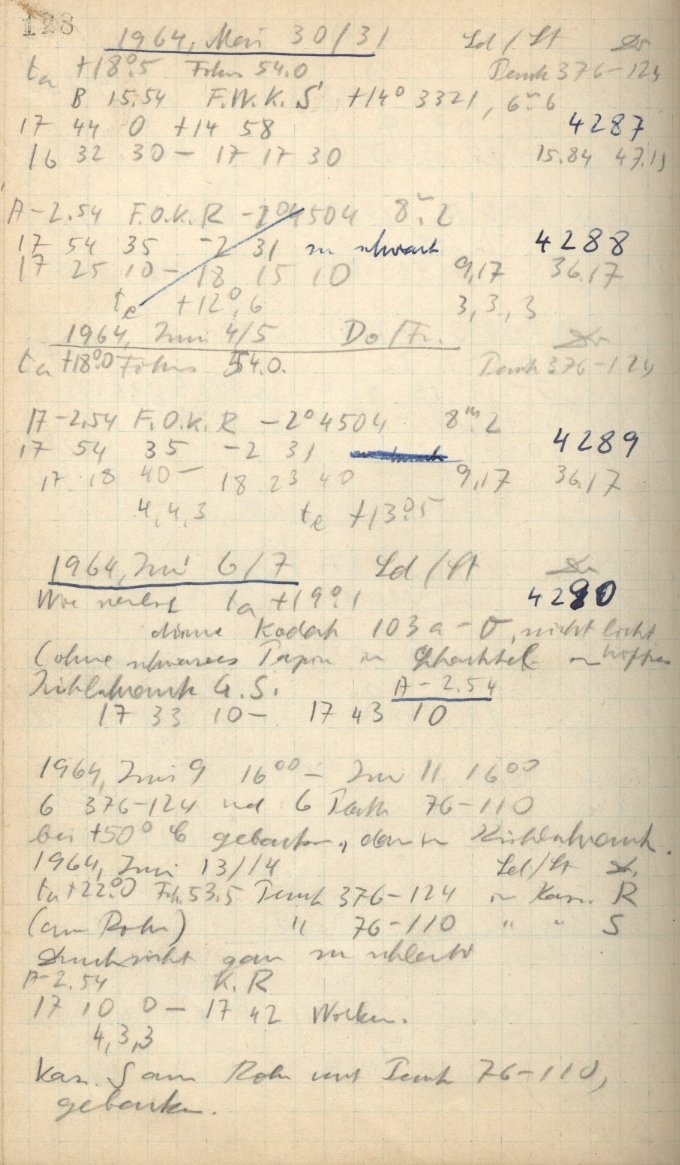 128
1964, Mai 30/31 Ld/St Dr
ta +18°.5 Fokus 54.0 Pank 376-124
B 15.54 F.W.K.S +14° 3321, 6m.6
17 44 0 +14 58 4287
16 32 30 - 17 17 30 15.84 47.19
A-2.54 F.O.K.R -2°4504 8m.2
17 54 35 -2 31 zu schwach 4288
17 25 10 - 18 15 10 9,17 36.17
te +12°,6 3,3,3
1964, Juni 4/5 Do/Fr. Dr
ta +18°.0 Fokus 54.0. Pank 376-124
A-2.54 F.O.K.R -2°4504 8m.2
17 54 35 -2 31 4289
17 18 40 - 18 23 40 9,17 36.17
4,4,3 te +13°.5
1964, Juni 6/7 Ld/St Dr
Wie vorher ta +19°.1 4290
Kodak 103a-O, nicht licht
(ohne schwarzes Papier in Schachtel in
Kühlschrank G.S. A-2.54
17 33 10 - 17 43 10
1964, Juni 9 16°° - Juni 11 16°°
6 376-124 und 6 76-110
bei +50° C gebacken, dann in Kühlschrank.
1964, Juni 13/14 Ld/St Dr
ta +22°.0 Fok. 53.5 Pank 376-124 in Kass. R
(am Rohr) " 76-110 " " S
Durchsicht ganz zu schlecht
A-2.54 K.R
17 10 0 - 17 42 Wolken.
4,3,3
Kass. S am Rohr mit Pank 76-110,
gebacken.